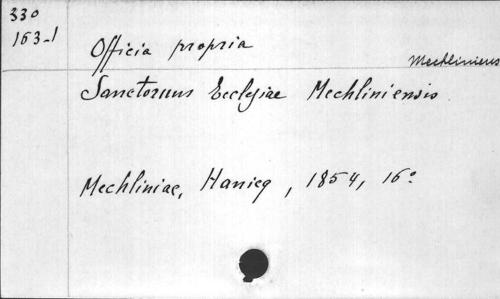 330
163-1
Officia propria
Mechliniens
Sanctorum Ecclesiae Mechliniensis
Mechliniae, Hanicq, 1854, 16°